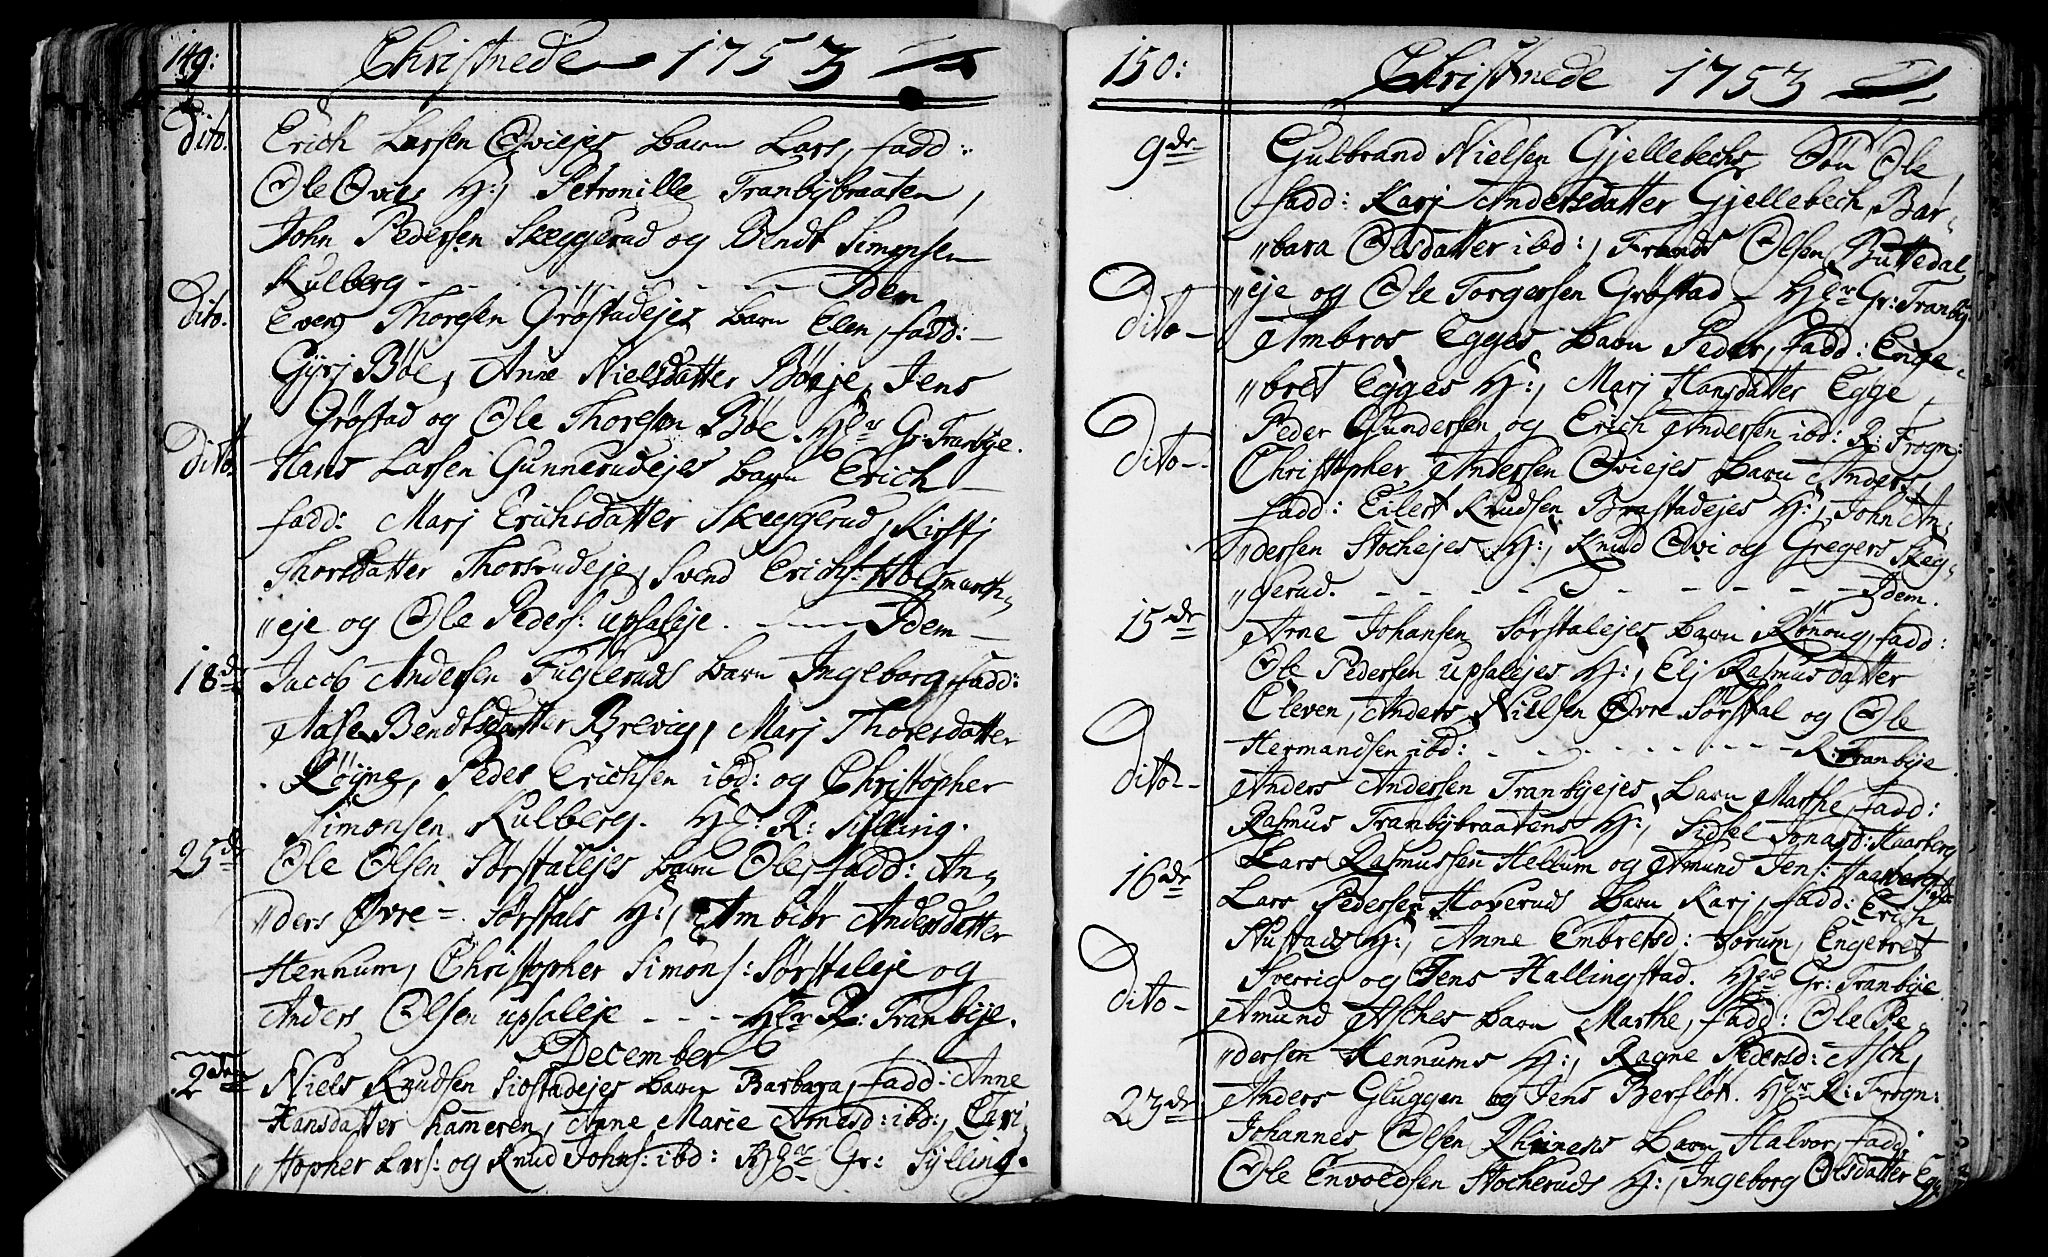 149: Christnede 1753
dito. Erich Larsen Øviejes barn Lars, fadd:
Ole Øvies H:, Petronille Tranbybraaten,
John Pedersen Skeggerud og Bendt Simonsen
Kulberg - - - - - - Idem
dito. Even Thoresen Grøstadejes barn Elen, fadd:
Gyrj Bøe, Anne Nielsdatter Bøeje, Jens
Grøstad og Ole Thoresen Bøe. Hler Gr: Tranbye.
dito. Hans Larsen Gunnerudejes barn Erich
fadd: Marj Erichsdatter Skeggerud, Kirstj
Thorsdatter Thorsrudeje, Svend Erichs: Holmarch
"eje og Ole Peders: Upsaleje. - - - Idem
18de Jacob Andersen Fugleruds barn Ingeborg, fadd:
Aase Bendtsdatter Brevig, Marj Thoresdatter
Røgne, Peder Erichsen ibd: og Christopher
Simonsen Kulberg. Hl: R: Sylling.
25de Ole Olsen Sørstalejes barn Ole, fadd: An-
"ders Øvre-Sørstals H:, Ambiør Andersdatter
Hennum, Christopher Simons: Sørstaleje og
Anders Olsen Upsaleje - - - Hler R: Tranbye.
December
2den Niels Knudsen Siøstadejes barn Barbara, fadd: Anne
Hansdatter Hameren, Anne Marie Arnesd: ibd:, Chri
"stopher Lars: og Knud Johns: ibd: Hler Gr: Sylling.
150: Christnede 1753
9de Gulbrand Nielsen Gjellebechs Søn Ole,
fadd: Karj Andersdatter Gjellebech, Bar-
"bara Olsdatter ibd:, Frands Olsen Buttedal
"eje og Ole Torgersen Grøstad - Hler Gr: Tranby.
dito - Ambros Egges barn Peder, fadd: Enge-
"bret Egges H:, Marj Hansdatter Egge
Peder Gundersen og Erich Andersen ibd: R: Frogn:
dito - Christopher Andersen Øviejes barn Anders,
fadd: Eilert Knudsen Brastadejes H:, John An-
"dersen Stochejes H:, Knud Øvi og Gregers Skeg-
"gerud. - - - - - - - - Idem.
15de Arne Johansen Sørstalejes barn Rønoug, fadd:
Ole Pedersen Upsalejes H:, Elj Rasmusdatter
Cleven, Anders Nielsen Øvre Sørstal og Ole
Hermandsen ibd: - - - - - - - R: Tranbye.
dito - Anders Andersen Tranbyejes barn Marthe, fadd:
Rasmus Tranbybraatens H:, Sidsel Haarberg
Lars Rasmussen Hellum og Amund Jens: Haarberg
16de Lars Pedersen Hoveruds barn Karj, fadd: Erich
Stustads H:, Anne Embretsd: Horum, Engebret
Sverrig og Jens Hallingstad. Hler Gr: Tranbye.
dito - Amund Asches barn Marthe, fadd: Ole Pe-
"dersen Hennums H:, Ragne Pedersd: Asch,
Anders Gluggen og Jens Berfløt. Hler R: Frogn:
23de Johannes Olsen Rhinens barn Halvor, fadd:
Ole Envoldsen Stocheruds H:, Ingeborg Olsdatter